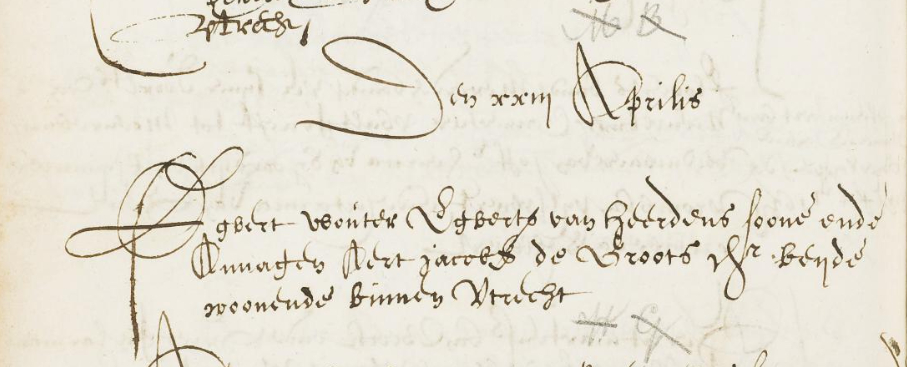 Vtrecht
Den xxiij Aprilis
Egbert wouter Egberts van Heerdens soone ende
Annagen Aert jacobs de Groots dr beyde
woonende binnen Vtrecht